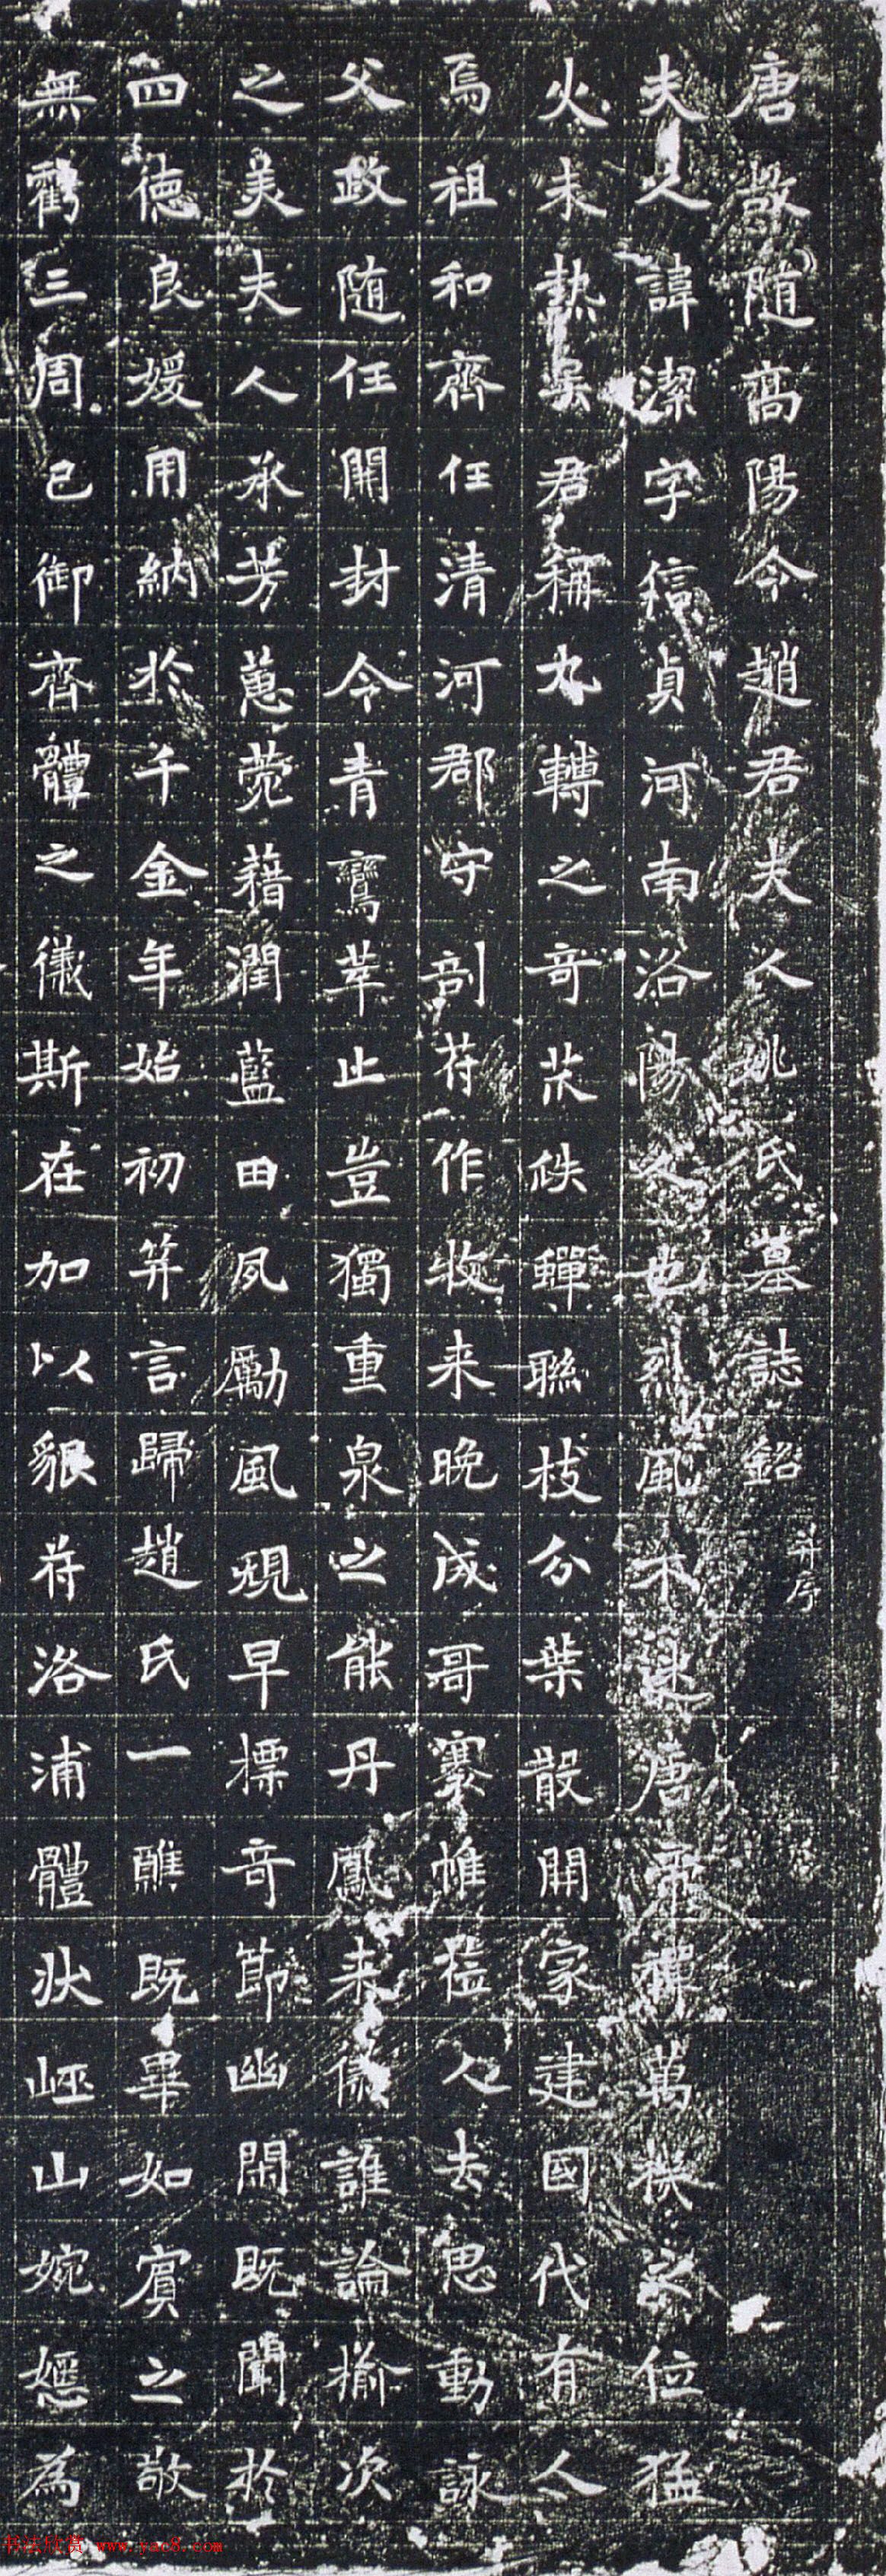 唐故随高陽令趙君夫人姚氏墓誌銘并序
夫人諱潔字脩貞河南洛陽人也烈風不迷唐帝禪萬機之位猛
火未熱吴君稱九轉之奇苂跌蟬聯枝分葉散開家建國代有人
焉祖和齊任清河郡守剖苻作牧来晩成哥褰帷莅人去思動詠
父政随任開封令青鸞萃止豈獨重泉之能丹鳳来儀誰論揄次
之美夫人承芳蕙菀藉潤藍田夙勵風規早摽奇節幽閑既聞於
四德良媛用納於千金年始初笄言歸趙氏一醮既畢如賓之敬
無虧三周已御齊體之儀斯在加以貌苻洛浦體狀巫山婉嫕為
书法欣赏 www.yac8.com